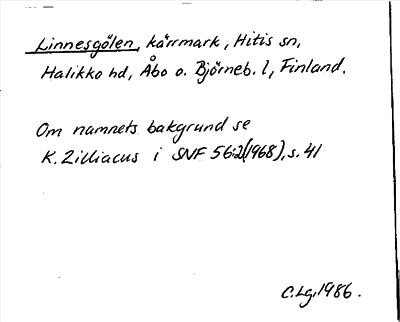 Linnesgölen, kärrmark, Hitis sn,
Halikko hd, Åbo o. Björneb. l, Finland.
Om namnets bakgrund se
K. Zilliacus i SNF 56:2(1968), s. 41
C.Lg. 1986.